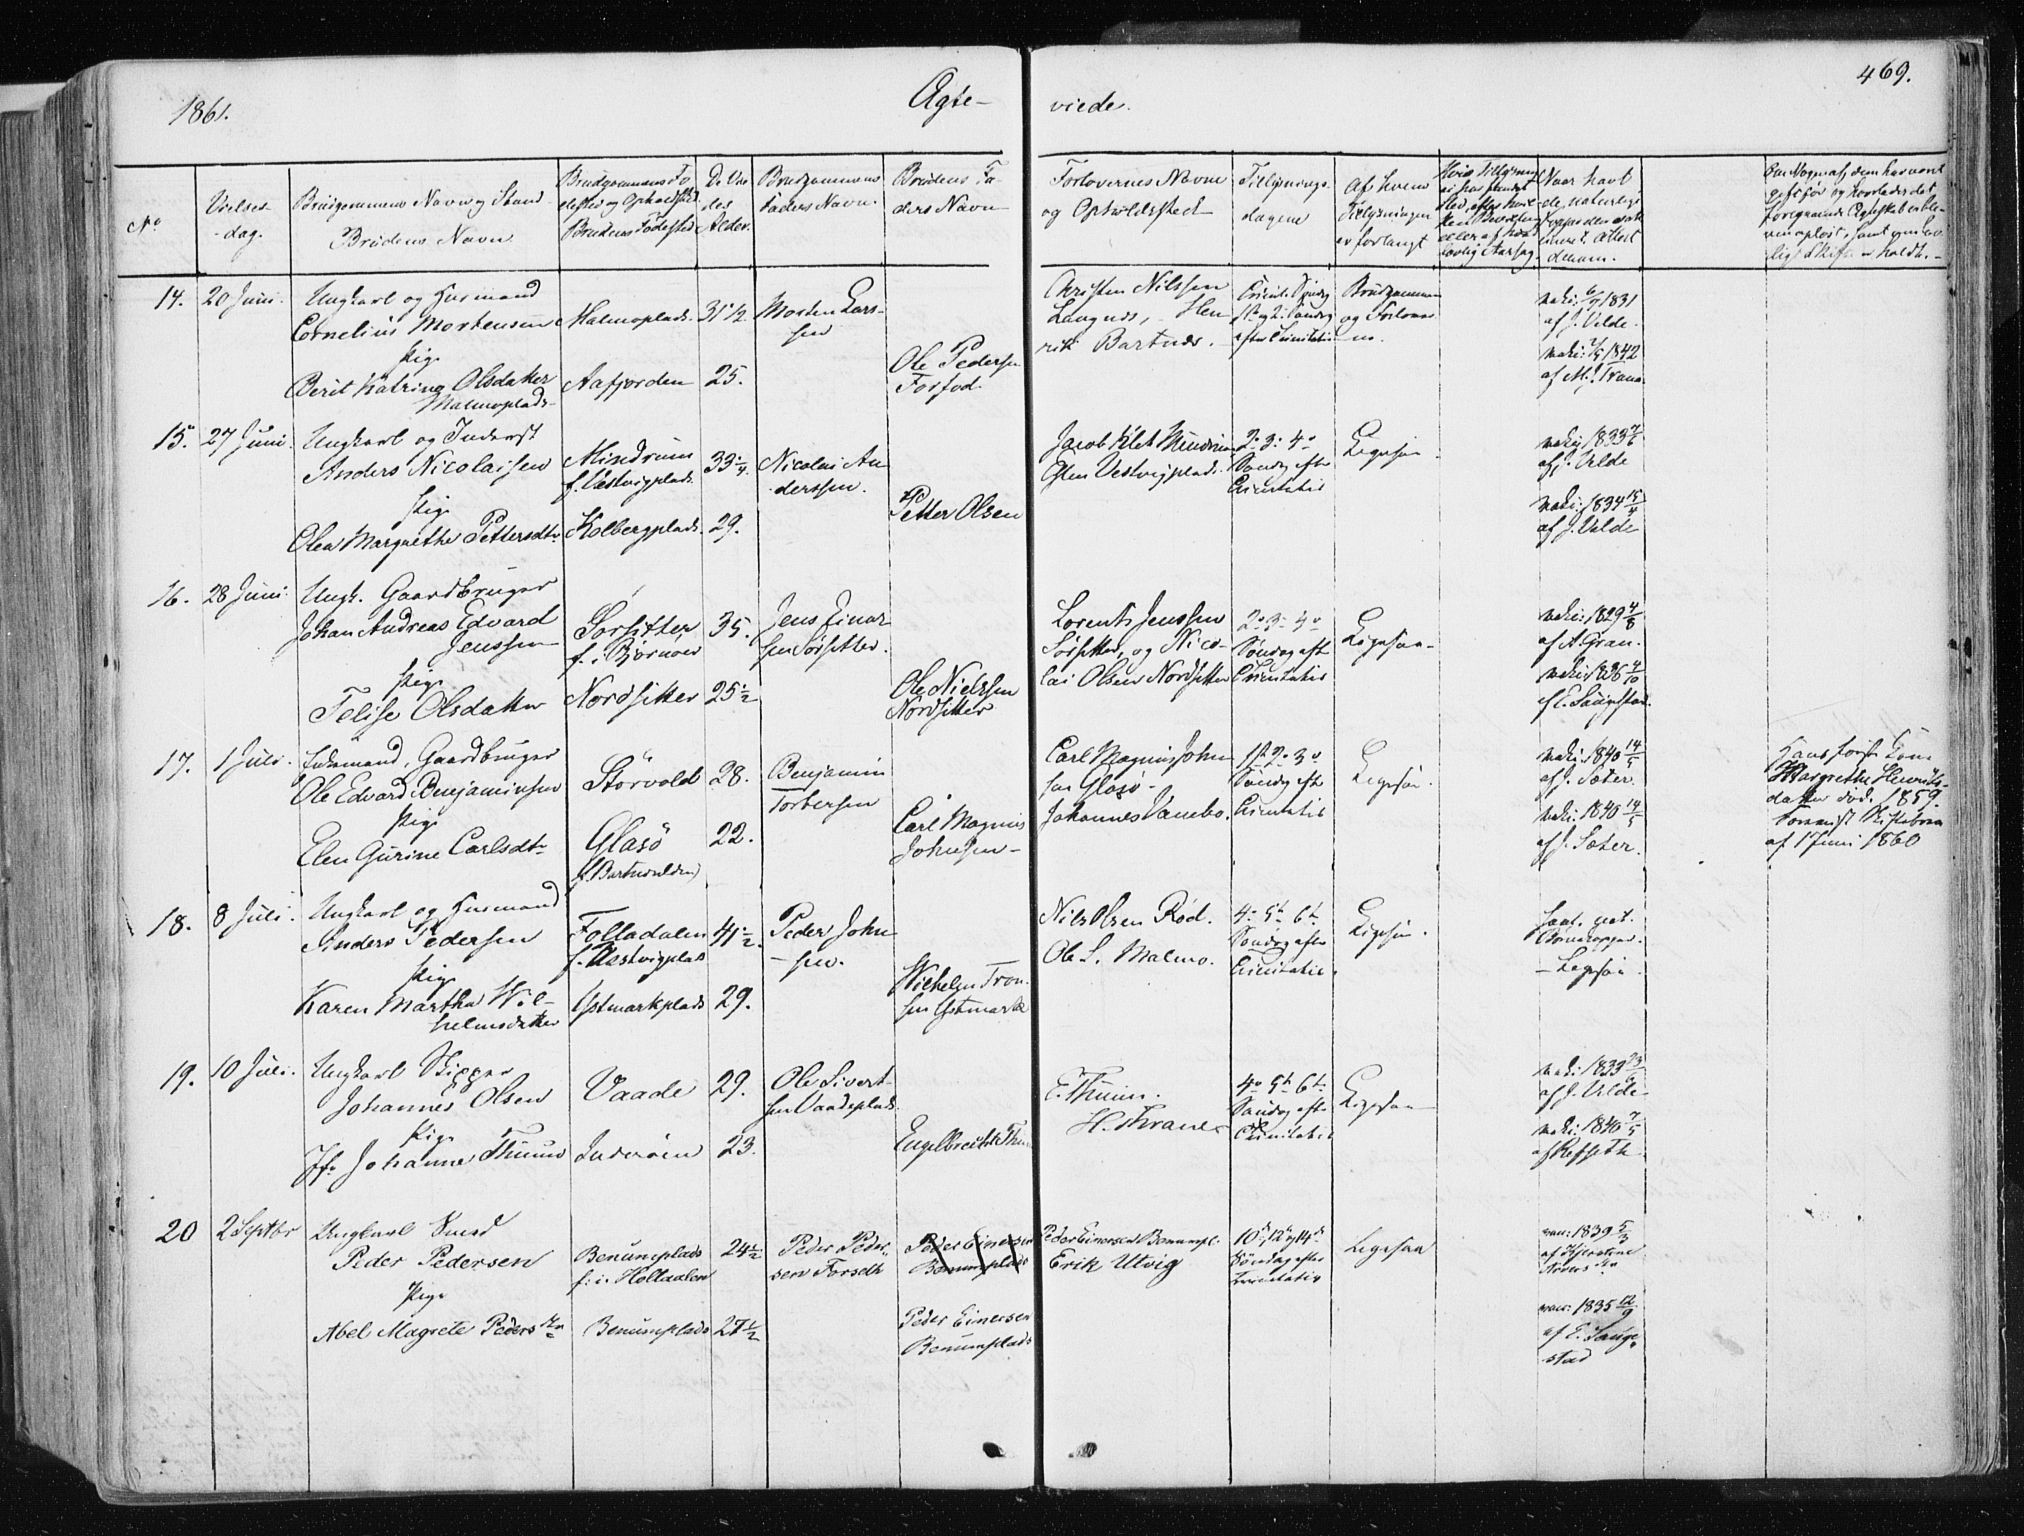 1861.
Ægte-
viede.
469.
No
Vielses
-dag.
Brudgommens Navn og Stand
Brudens Navn
Brudgommens Fø
Brudens Fødested
De Vie
des
Alder.
Brudgommens
Faders Navn.
Brudens Fa-
ders Navn
Forlovernes Navne
og Opholdssted
Tillysnings-
dagene
Af hvem
Tillysningen
er forlangt
Naar havt
de naturlige
14. 20 Juni.
Ungkarl og Husmand
Cornelius Mortensen
Pige
Berit Katrina Olsdatter
Malmoplads
Malmoplads.
Aafjorden
31 1/2
25.
Morten Lars-
sen
Ole Pedersen
Forfod.
Christen Nilssen
Langnes, Hen
rik Bartnes.
efter Trinitatis
Brudgommen
og Forlover
ne.
vaki: 6/7 1831
af J. Velde.
vaki: 1842
af M. Trana.
15. 27 Juni.
Ungkarl og Inderst
Anders Nicolaisen
Pige
Olea Margrethe Pettersdtr
Mindrum
f. Vestvigplads
Kolbergplads.
33 1/4.
29.
Nicolai An
derssen.
Petter Olsen
Jacob Klet Mindrum
Esten Vestvigplads.
2o 3o 4o
Søndag efter
Trinitatis
Ligesaa.
vaki: 1833
af J. Velde
vaki: 1834 15/4
af J. Velde
16. 28 Juni.
Ungk. Gaardbruger
Johan Andreas Edvard
Jenssen
Pige
Felise Olsdatter
Sørsitter
f. i Bjørnør
Nordsitter
35.
25 1/2
Jens Einar
sen Sørsitter.
Ole Nielssen
Nordsitter
Lorents Jenssen
Sørsitter, og Nico-
lai Olsen Nordsitter
2o 3o 4o
Søndag eft
Trinitatis
Ligesaa
vaki: 1829 4/8
af A. Gran.
vaki: 1836 4/10
af E. Saugestad.
17. 1 Juli.
Enkemand, Gaardbruger
Ole Edvard Benjaminsen
Pige
Elen Gurine Carlsdtr
Størvold
Glasö
28.
22.
Benjamin
Torbersen
Carl Magnus
Johnsen
Carl Magnus John
sen Glasø
Johannes Vannebo.
1st 2o 3o
Søndag eft
Trinitatis
Ligesaa.
vaki: 1840 14/5
af J. Sæter.
vaki: 1840 14/5
af J. Sæter.
Hans første Kone
Margrethe Henriks-
datter død. 1859.
af 1 Juni 1860
18. 8 Juli.
Ungkarl og Husmand
Anders Pedersen
Pige
Karen Martha Wil-
helmsdatter
Folladalen
f. Vestvigplads
Østmarkplads
41 1/2.
29.
Peder John
-sen.
Wilhelm Tron-
sen Østmark
Nils Olsen Rød.
Ole S. Malmo.
4o 5te 6te
Søndag efter
Trinitatis.
Ligesaa.
Ligesaa.
19. 10 Juli.
Ungkarl Skipper
Johannes Olsen
Pige
Jfr Johanne Thuun
Vaade
Inderøen
29.
23.
Ole Sivert-
sen Vaadeplads
Engelbrecht Thuun
E. Thuun.
H. Thrane
4o 5te 6te
Søndag efter
Trinitatis
Ligesaa
vaki: 1833 23/
af J. Velde
vaki: 1840 7/5
20
2 Septbr
Ungkarl Smed
Peder Pedersen
Pige
Abel Magrete Pedersdtr
Benumplads
f: i: Holtaalen
Benumplads
24 1/2
27 1/2
Peder Peder-
sen Forseth
Peder Einersen
Benumplads
Peder Einersen
Benumplads
Peder Einersen Benumpl.
Erik Utvig
10de, 12, 14de
Søndag efter
Trinitatis
Ligesaa
vac: 1839 5/3
af Kjerstine
vac: 1835 12/9
af E. Sauge-
stad